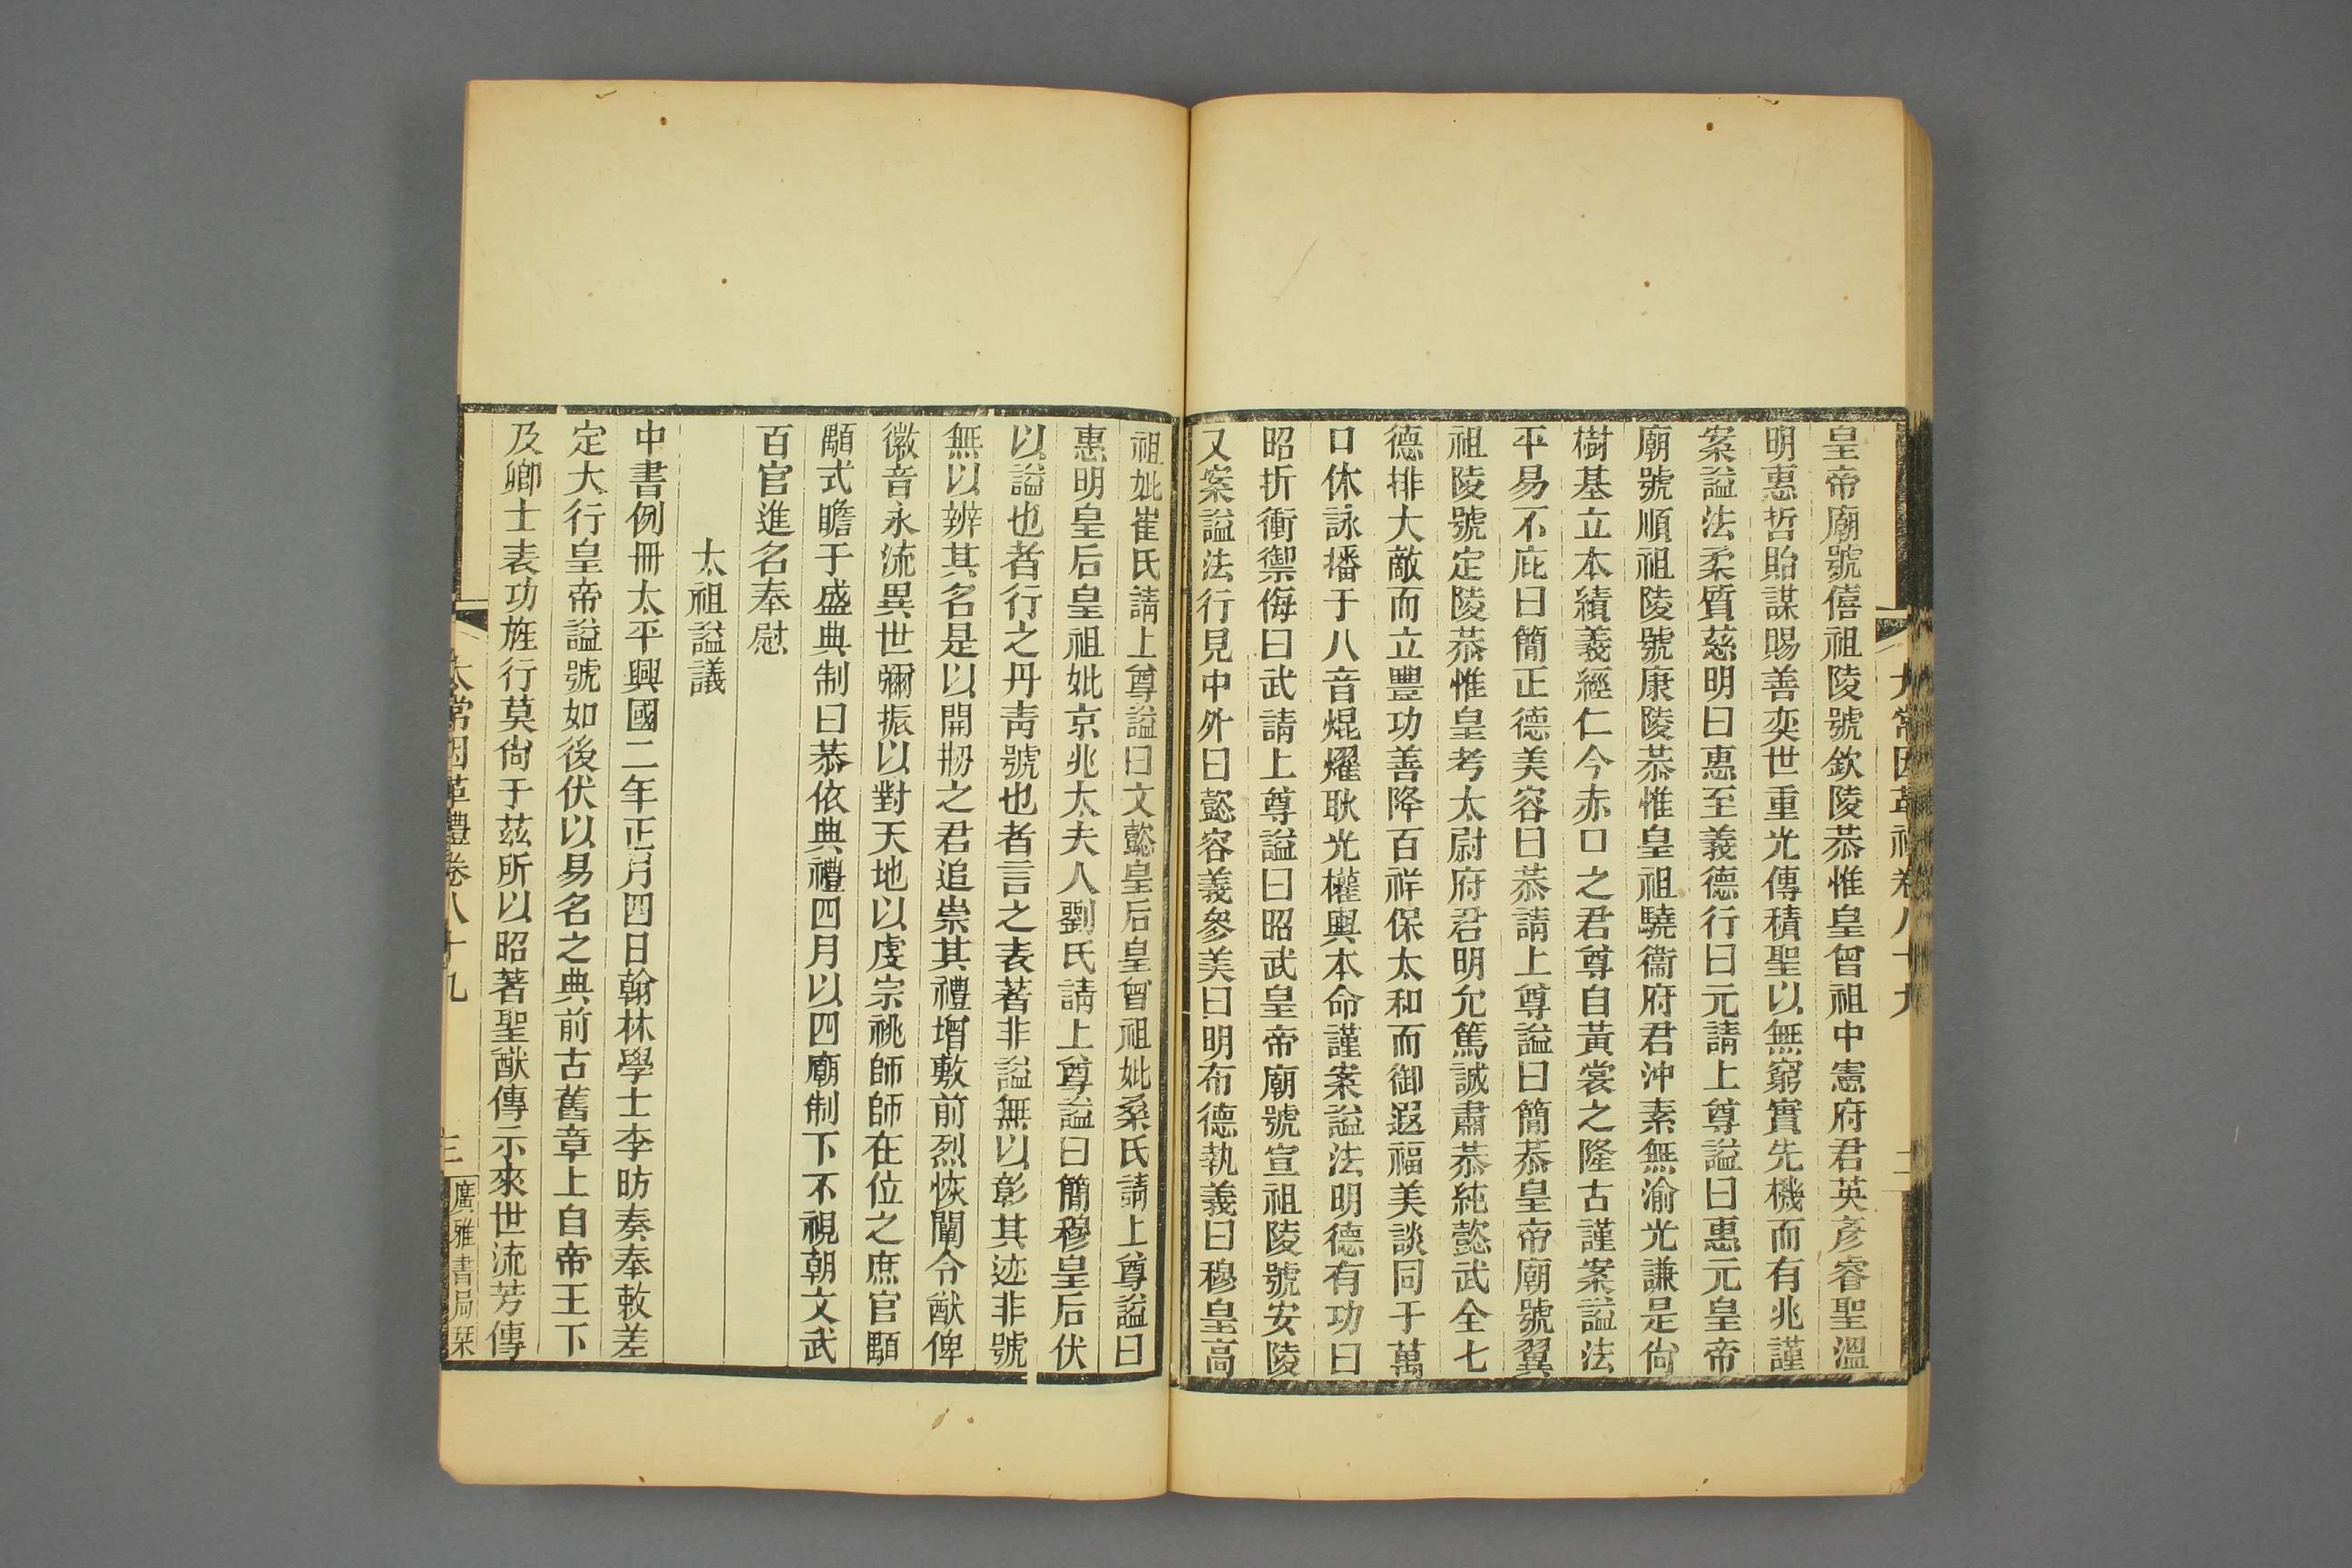 皇帝廟號僖祖陵號欽陵恭惟皇曾祖中憲府君英彥睿聖溫
明惠哲貽謀賜善奕世重光傳積聖以無窮實先機而有兆謹
案謚法柔質慈明曰惠至義德行曰元請上尊謚曰惠元皇帝
廟號順祖陵號康陵恭惟皇祖驍衞府君沖素無渝光謙是尙
樹基立本績義經仁今赤口之君尊自黃裳之隆古謹案謚法
平易不庇曰簡正德美容曰恭請上尊謚曰簡恭皇帝廟號翼
祖陵號定陵恭惟皇考太尉府君明允篤誠肅恭純懿武全七
德排大敵而立豐功善降百祥保太和而御遐福美談同于萬
口休詠播于八音焜燿耿光權輿本命謹案謚法明德有功曰
昭折衝禦侮曰武請上尊謚曰昭武皇帝廟號宣祖陵號安陵
又案謚法行見中外曰懿容義參美曰明布德執義曰穆皇高
祖妣崔氏請上尊謚曰文懿皇后皇曾祖妣桑氏請上尊謚曰
惠明皇后皇祖妣京兆太夫人劉氏請上尊謚曰簡穆皇后伏
以謚也者行之丹靑號也者言之表著非謚無以彰其迹非號
無以辨其名是以開刱之君追崇其禮增敷前烈恢闡令猷俾
徽音永流異世彌振以對天地以虔宗祧師師在位之庶官顒
顒式瞻于盛典制曰恭依典禮四月以四廟制下不視朝文武
百官進名奉慰
太祖謚議
中書例冊太平興國二年正月四日翰林學士李昉奏奉敕差
定大行皇帝謚號如後伏以易名之典前古舊章上自帝王下
及卿士表功旌行莫尙于茲所以昭著聖猷傳示來世流芳傳
太常因革禮卷八十九
三
廣雅書局栞